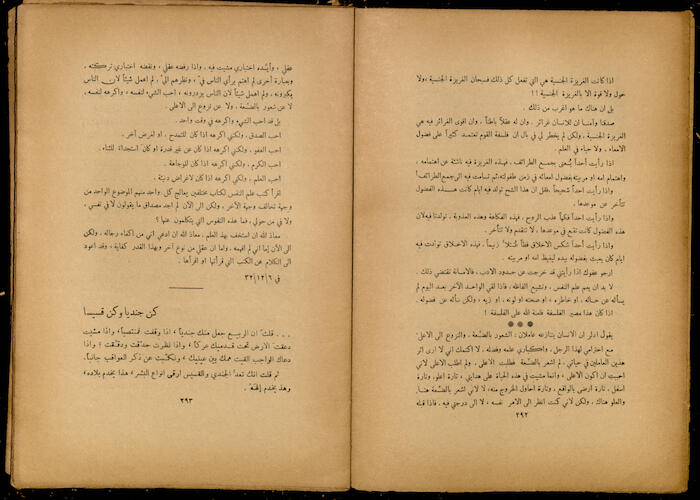 اذا كانت الغريزة الجنسية هي التي تفعل كل ذلك فسبحان الغريزة الجنسية ، ولا
حول ولا قوة الا بالغريزة الجنسية !!
بل ان هناك ما هو اغرب من ذلك .
صدقنا وآمنا ان للانسان غرائز . وان له عقلاً باطناً ، وان اقوى الغرائز فيه هي
الغريزة الجنسية ، ولكن لم يخطر لي في بال ان فلسفة القوم تعتمد كثيراً على فضول
الامعاء . ولا حياء في العلم .
اذا رأيت أحداً يُعنى بجمع الطرائف ، فهذه الغريزة فيه ناشئة عن اهتمامه ،
واهتمام امه او مربيته بفضول امعائه في زمن طفولته ، ثم تسامت فيه الى جمع الطرائف !
واذا رأيت احداً شحيحاً ، فقل ان هذا الشح تولد فيه ايام كانت هذه الفضول
تتأخر عن موعدها .
واذا رأيت احداً فكهاً عذب الروح ، فهذه الفكاهة وهذه العذوبة ، تولدتا فيه لان
هذه الفضول كانت تقع في موعدها ، لا تتقدم ولا تتأخر .
واذا رأيت أحداً شكس الاخلاق فظاً عُتلاً زنيماً ، فهذه الاخلاق توالدت فيه
ايام كان يعبث بفضوله بيده ليغيظ امه او مربيته .
ارجو عفوك اذا رأيتني قد خرجت عن حدود الادب ، فالامانة تقتضي ذلك .
لا بد ان يعم علم النفس ، وتشيع الفاظه ، فاذا لقي الواحد الآخر بعد اليوم لم
يسأله عن حاله ، او خاطره ، او صحته او لونه ، او زيه ، ولكن سأله عن فضوله .
اذا كان هذا مصير الفلسفة فلعنة الله على الفلسفة !
● ● ●
يقول ادلر ان الانسان يتنازعه عاملان : الشعور بالضّعة ، والنزوع الى الاعلى .
مع احترامي لهذا الرجل ، واكباري علمه وفضله ، لا اكتمك اني لا ارى اثر
هذين العاملين في حياتي . لم اشعر بالضّعة فطلبت الاعلى ، ولم اطلب الاعلى لاني
احببت ان اكون الاعلى ، وانما مشيت في هذه الحياة على هدايتي ، تارة اعلو ، وتارة
اسفل ، تارة ارضى بالواقع ، وتارة أحاول الخروج منه ، لا لاني اشعر بالضّعة هنا
والعلو هناك ، ولكن لاني كنت انظر الى الامر نفسه ، لا الى درجتي فيه . فاذا قبله
٢٩٢
عقلي ، وأيّده اختباري مشيت فيه ، واذا رفضه عقلي ، ونقضه اختباري تركته ،
وبعبارة أخرى لم اهتم برأي الناس فيّ ، ونظرهم اليّ ، لم اهمل شيئاً لان الناس
يكرهونه ، ولم اهمل شيئاً لان الناس يزدرونه ، احب الشيء لنفسه ، واكرهه لنفسه ،
لا عن شعور بالضّعة ، ولا عن نزوع الى الاعلى .
بل قد احب الشيء واكرهه في وقت واحد .
احب الصدق ، ولكني اكرهه اذا كان للتمدح ، او لغرض آخر .
احب العفو ، ولكني اكرهه اذا كان عن غير قدرة او كان استجداء للثناء .
احب الكرم ، ولكني اكرهه اذا كان للوجاهة .
احب العلم ، ولكني اكرهه اذا كان لاغراض دنيئة .
اقرأ كتب علم النفس لكتاب مختلفين يعالج كل واحد منهم الموضوع الواحد من
وجهة تخالف وجهة الآخر ، ولكني الى الآن لم اجد مصداق ما يقولون لا في نفسي ،
ولا في من حولي ، فما هذه النفوس التي يتكلمون عنها ؟
معاذ الله ان استخف بهذ العلم ، معاذ الله ان ادعي اني من اكفاء رجاله ، ولكن
الى الآن إما اني لم افهمه ، واما ان عقلي من نوع آخر وبهذا القدر كفاية ، وقد اعود
الى الكلام عن الكتب التي قرأتها او اقرأها .
في ٦|١٢|٣٢
كن جنديا وكن قسيسا
. . . قلتَ ان الربيع جعل منك جندياً ، اذا وقفت فمنتصباً ، واذا مشيت
دعقت الارض تحت قدميك عركاً ، واذا نظرت حدّقت ودققت ، واذا
دعاك الواجب القيت همك بين عينيك ، ونكّبت عن ذكر العواقب جانباً .
ثم قلت انك تعدّ الجندي والقسيس ارقى انواع البشر ، هذا يخدم بلاده ،
وهذا يخدم إلهَه .
٢٩٣